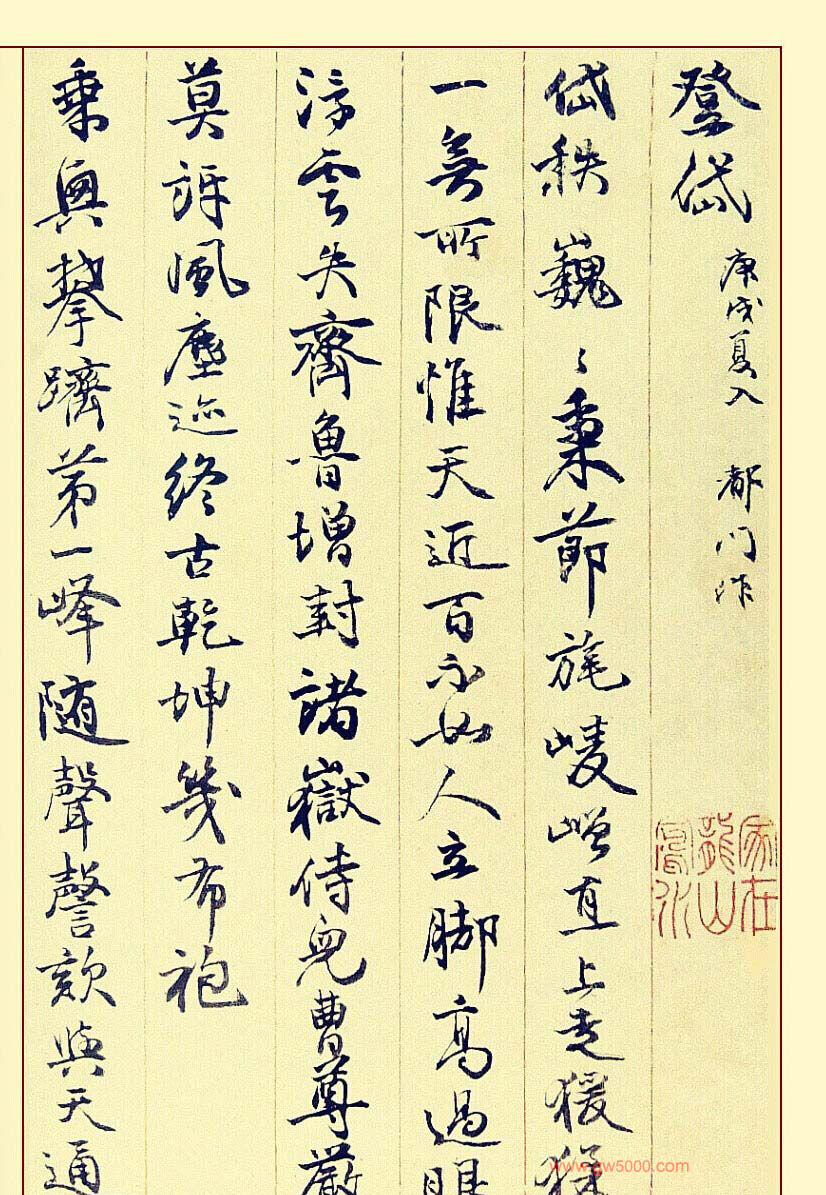 登岱 庚戌夏入 都门作
岱秩巍〻秉節旄崚嶒直上走猨猱
一無所限惟天近百不如人立脚高過眼
浮雲失齊魯增封諸嶽侍兒曹尊嚴
莫訝風塵迹終古乾坤幾布袍
乘興攀躋第一峰随聲謦欬與天通
家在龍山鳳水
www.gw5000.com